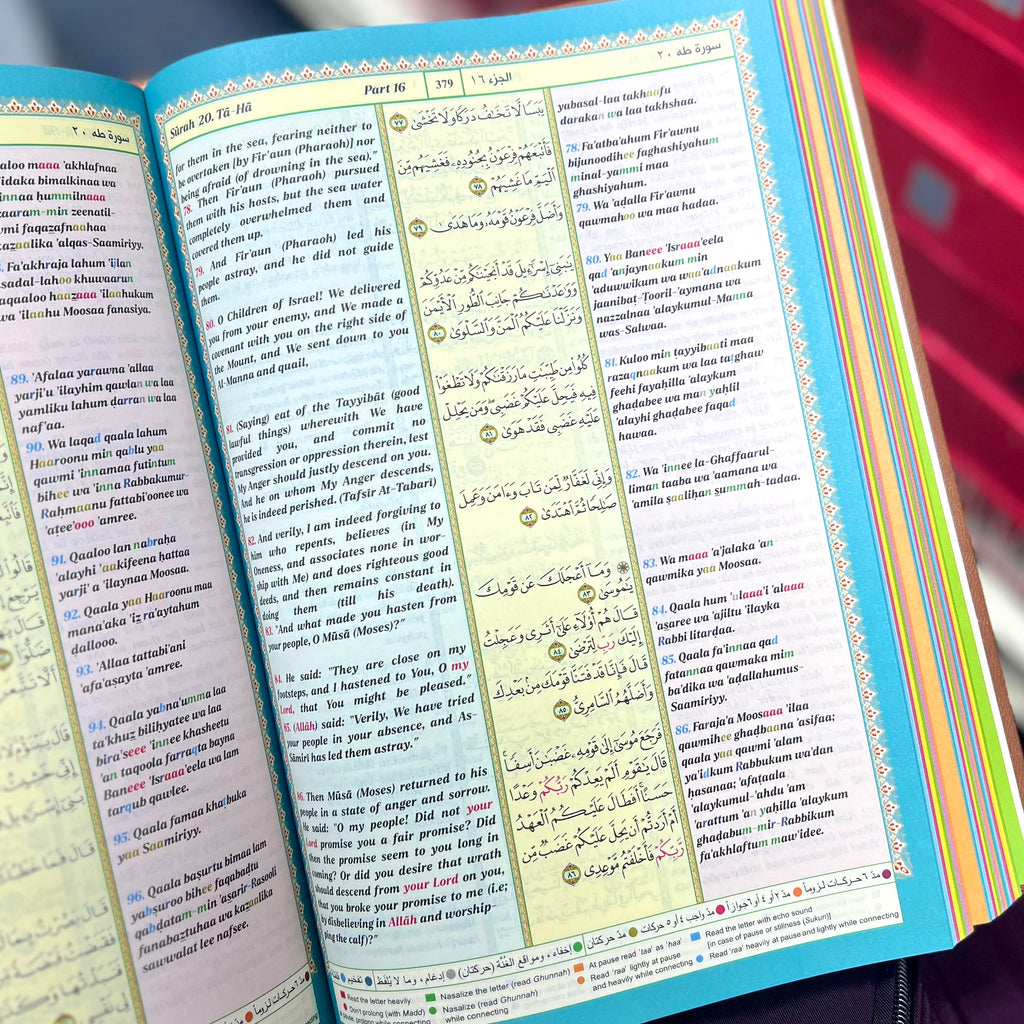 سورة طه ٢٠
aloo maaa 'akhlafnaa
'idaka bimalkinaa wa
innaa ḥummilnaaa
zaaram-min zeenatil-
wmi faqazafnaahaa
kazaalika 'alqas-Saamiriyy.
Fa'akhraja lahum 'ijlan
asadal-lahoo khuwaarun
faqaaloo haazaaa 'ilaahukum
wa 'ilaahu Moosaa fanasiya.
89. 'Afalaa yarawna 'allaa
yarji'u 'ilayhim qawlan wa laa
yamliku lahum ḍarran wa laa
naf'aa.
90. Wa laqad qaala lahum
Haaroonu min qablu yaa
qawmi 'innamaa futintum
bihee wa 'inna Rabbakumur-
Raḥmaanu fattabi'oonee wa
'aṭee'ooo 'amree.
91. Qaaloo lan nabraḥa
'alayhi 'aakifeena ḥattaa
yarji' a 'ilaynaa Moosaa.
92. Qaala yaa Haaroonu maa
mana'aka 'iz ra'aytahum
ḍallooo.
93. 'Allaa tattabi'ani
'afa'aṣayta 'amree.
94. Qaala yabna'umma laa
ta'khuz biliḥyatee wa laa
bira'seee 'innee khasheetu
'an taqoola farraqta bayna
Baneee 'Israaa'eela wa lam
tarqub qawlee.
95. Qaala famaa khaṭbuka
yaa Saamiriyy.
96. Qaala baṣurtu bimaa lam
yabṣuroo bihee faqabaḍtu
qabḍatam-min 'aṣarir-Rasooli
fanabaztuhaa wa kazaalika
sawwalat lee nafsee.
Sûrah 20. Tā-Hā
Part 16
379
الجزء ١٦
سورة طه ٢٠
for them in the sea, fearing neither to
be overtaken [by Fir'aun (Pharaoh)] nor
being afraid (of drowning in the sea)."
78. Then Fir'aun (Pharaoh) pursued
them with his hosts, but the sea water
completely overwhelmed them and
covered them up.
79. And Fir'aun (Pharaoh) led his
people astray, and he did not guide
them.
80. O Children of Israel! We delivered
you from your enemy, and We made a
covenant with you on the right side of
the Mount, and We sent down to you
Al-Manna and quail,
81. (Saying) eat of the Tayyibāt (good
lawful things) wherewith We have
provided you, and commit no
transgression or oppression therein, lest
My Anger should justly descend on you.
And he on whom My Anger descends,
he is indeed perished. (Tafsir At-Tabari)
82. And verily, I am indeed forgiving to
him who repents, believes (in My
Oneness, and associates none in wor-
ship with Me) and does righteous good
deeds, and then remains constant in
doing them (till his death).
83. "And what made you hasten from
your people, O Mūsā (Moses)?"
84. He said: "They are close on my
footsteps, and I hastened to You, O my
Lord, that You might be pleased."
85. (Allāh) said: "Verily, We have tried
your people in your absence, and As-
Sāmiri has led them astray."
86. Then Mūsā (Moses) returned to his
people in a state of anger and sorrow.
He said: "O my people! Did not your
Lord promise you a fair promise? Did
then the promise seem to you long in
coming? Or did you desire that wrath
should descend from your Lord on you,
that you broke your promise to me (i.e;
by disbelieving in Allāh and worship-
ping the calf)?"
يَبَسًا لَّا تَخَٰفُ دَرَكًا وَلَا تَخْشَىٰ ٧٧
فَأَتْبَعَهُمْ فِرْعَوْنُ بِجُنُودِهِۦ فَغَشِيَهُم مِّنَ
ٱلْيَمِّ مَا غَشِيَهُمْ ٧٨
وَأَضَلَّ فِرْعَوْنُ قَوْمَهُۥ وَمَا هَدَىٰ ٧٩
يَٰبَنِىٓ إِسْرَٰٓءِيلَ قَدْ أَنجَيْنَٰكُم مِّنْ عَدُوِّكُمْ
وَوَٰعَدْنَٰكُمْ جَانِبَ ٱلطُّورِ ٱلْأَيْمَنَ
وَنَزَّلْنَا عَلَيْكُمُ ٱلْمَنَّ وَٱلسَّلْوَىٰ ٨٠
كُلُوا۟ مِن طَيِّبَٰتِ مَا رَزَقْنَٰكُمْ وَلَا تَطْغَوْا۟
فِيهِ فَيَحِلَّ عَلَيْكُمْ غَضَبِى ۖ وَمَن يَحْلِلْ
عَلَيْهِ غَضَبِى فَقَدْ هَوَىٰ ٨١
وَإِنِّى لَغَفَّارٌ لِّمَن تَابَ وَءَامَنَ وَعَمِلَ
صَٰلِحًا ثُمَّ ٱهْتَدَىٰ ٨٢
۞ وَمَآ أَعْجَلَكَ عَن قَوْمِكَ
يَٰمُوسَىٰ ٨٣
قَالَ هُمْ أُو۟لَآءِ عَلَىٰٓ أَثَرِى وَعَجِلْتُ
إِلَيْكَ رَبِّ لِتَرْضَىٰ ٨٤
قَالَ فَإِنَّا قَدْ فَتَنَّا قَوْمَكَ مِنۢ بَعْدِكَ
وَأَضَلَّهُمُ ٱلسَّامِرِىُّ ٨٥
فَرَجَعَ مُوسَىٰٓ إِلَىٰ قَوْمِهِۦ غَضْبَٰنَ أَسِفًا ۚ
قَالَ يَٰقَوْمِ أَلَمْ يَعِدْكُمْ رَبُّكُمْ وَعْدًا
حَسَنًا ۚ أَفَطَالَ عَلَيْكُمُ ٱلْعَهْدُ
أَمْ أَرَدتُّمْ أَن يَحِلَّ عَلَيْكُمْ غَضَبٌ مِّن
رَّبِّكُمْ فَأَخْلَفْتُم مَّوْعِدِى ٨٦
yabasal-laa takhaafu
darakan wa laa takhshaa.
78. Fa'atba'ahum Fir'awnu
bijunoodihee faghashiyahum
minal-yammi maa
ghashiyahum.
79. Wa 'aḍalla Fir'awnu
qawmahoo wa maa hadaa.
80. Yaa Baneee 'Israaa'eela
qad 'anjaynaakum min
'aduwwikum wa waa'adnaakum
jaanibat-Tooril-'aymana wa
nazzalnaa 'alaykumul-Manna
was-Salwaa.
81. Kuloo min ṭayyibaati maa
razaqnaakum wa laa taṭghaw
feehi fayaḥilla 'alaykum
ghaḍabee wa man yaḥlil
'alayhi ghaḍabee faqad
hawaa.
82. Wa 'innee la-Ghaffaarul-
liman taaba wa 'aamana wa
'amila ṣaaliḥan summah-tadaa.
83. Wa maaa 'a'jalaka 'an
qawmika yaa Moosaa.
84. Qaala hum 'ulaaa'i 'alaaa
'aṣaree wa 'ajiltu 'ilayka
Rabbi litarḍaa.
85. Qaala fa'innaa qad
fatannaa qawmaka mim
ba'dika wa 'aḍallahumus-
Saamiriyy.
86. Faraja'a Moosaaa 'ilaa
qawmihee ghaḍbaana 'asifaa;
qaala yaa qawmi 'alam
ya'idkum Rabbukum wa'dan
ḥasanaa; 'afaṭaala
'alaykumul-'ahdu 'am
'arattum 'an yaḥilla 'alaykum
ghaḍabum-mir-Rabbikum
fa'akhlaftum maw'idee.
مدّ ٦ حركات لزوماً مدّ ٢ أو ٤ أو ٦ جوازاً مدّ واجب ٤ أو ٥ حركات مدّ حركتان إخفاء، ومواقع الغُنَّة (حركتان) إدغام، وما لا يُلفظ تفخيم
Read the letter heavily
Don't prolong (with Madd)
Nasalize the letter (read Ghunnah)
Nasalize (read Ghunnah)
while connecting
At pause read 'taa' as 'haa'
Read 'raa' lightly at pause
and heavily while connecting
Read the letter with echo sound
[in case of pause or stillness (Sukun)]
Read 'raa' heavily at pause and lightly while connecting
مدّ ٦ حركات لزوماً